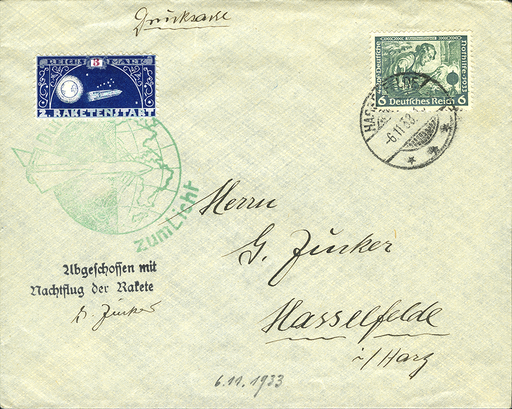 Drucksache
REICHS MARK
3
2. RAKETENSTART
Deutsche Nothilfe 1933
6 Deutsches Reich 6
-6.11.33.
zum Licht
Herrn
G. Zucker
Hasselfelde
i/Harz
Abgeschossen mit
Nachtflug der Rakete
G. Zucker
6.11.1933